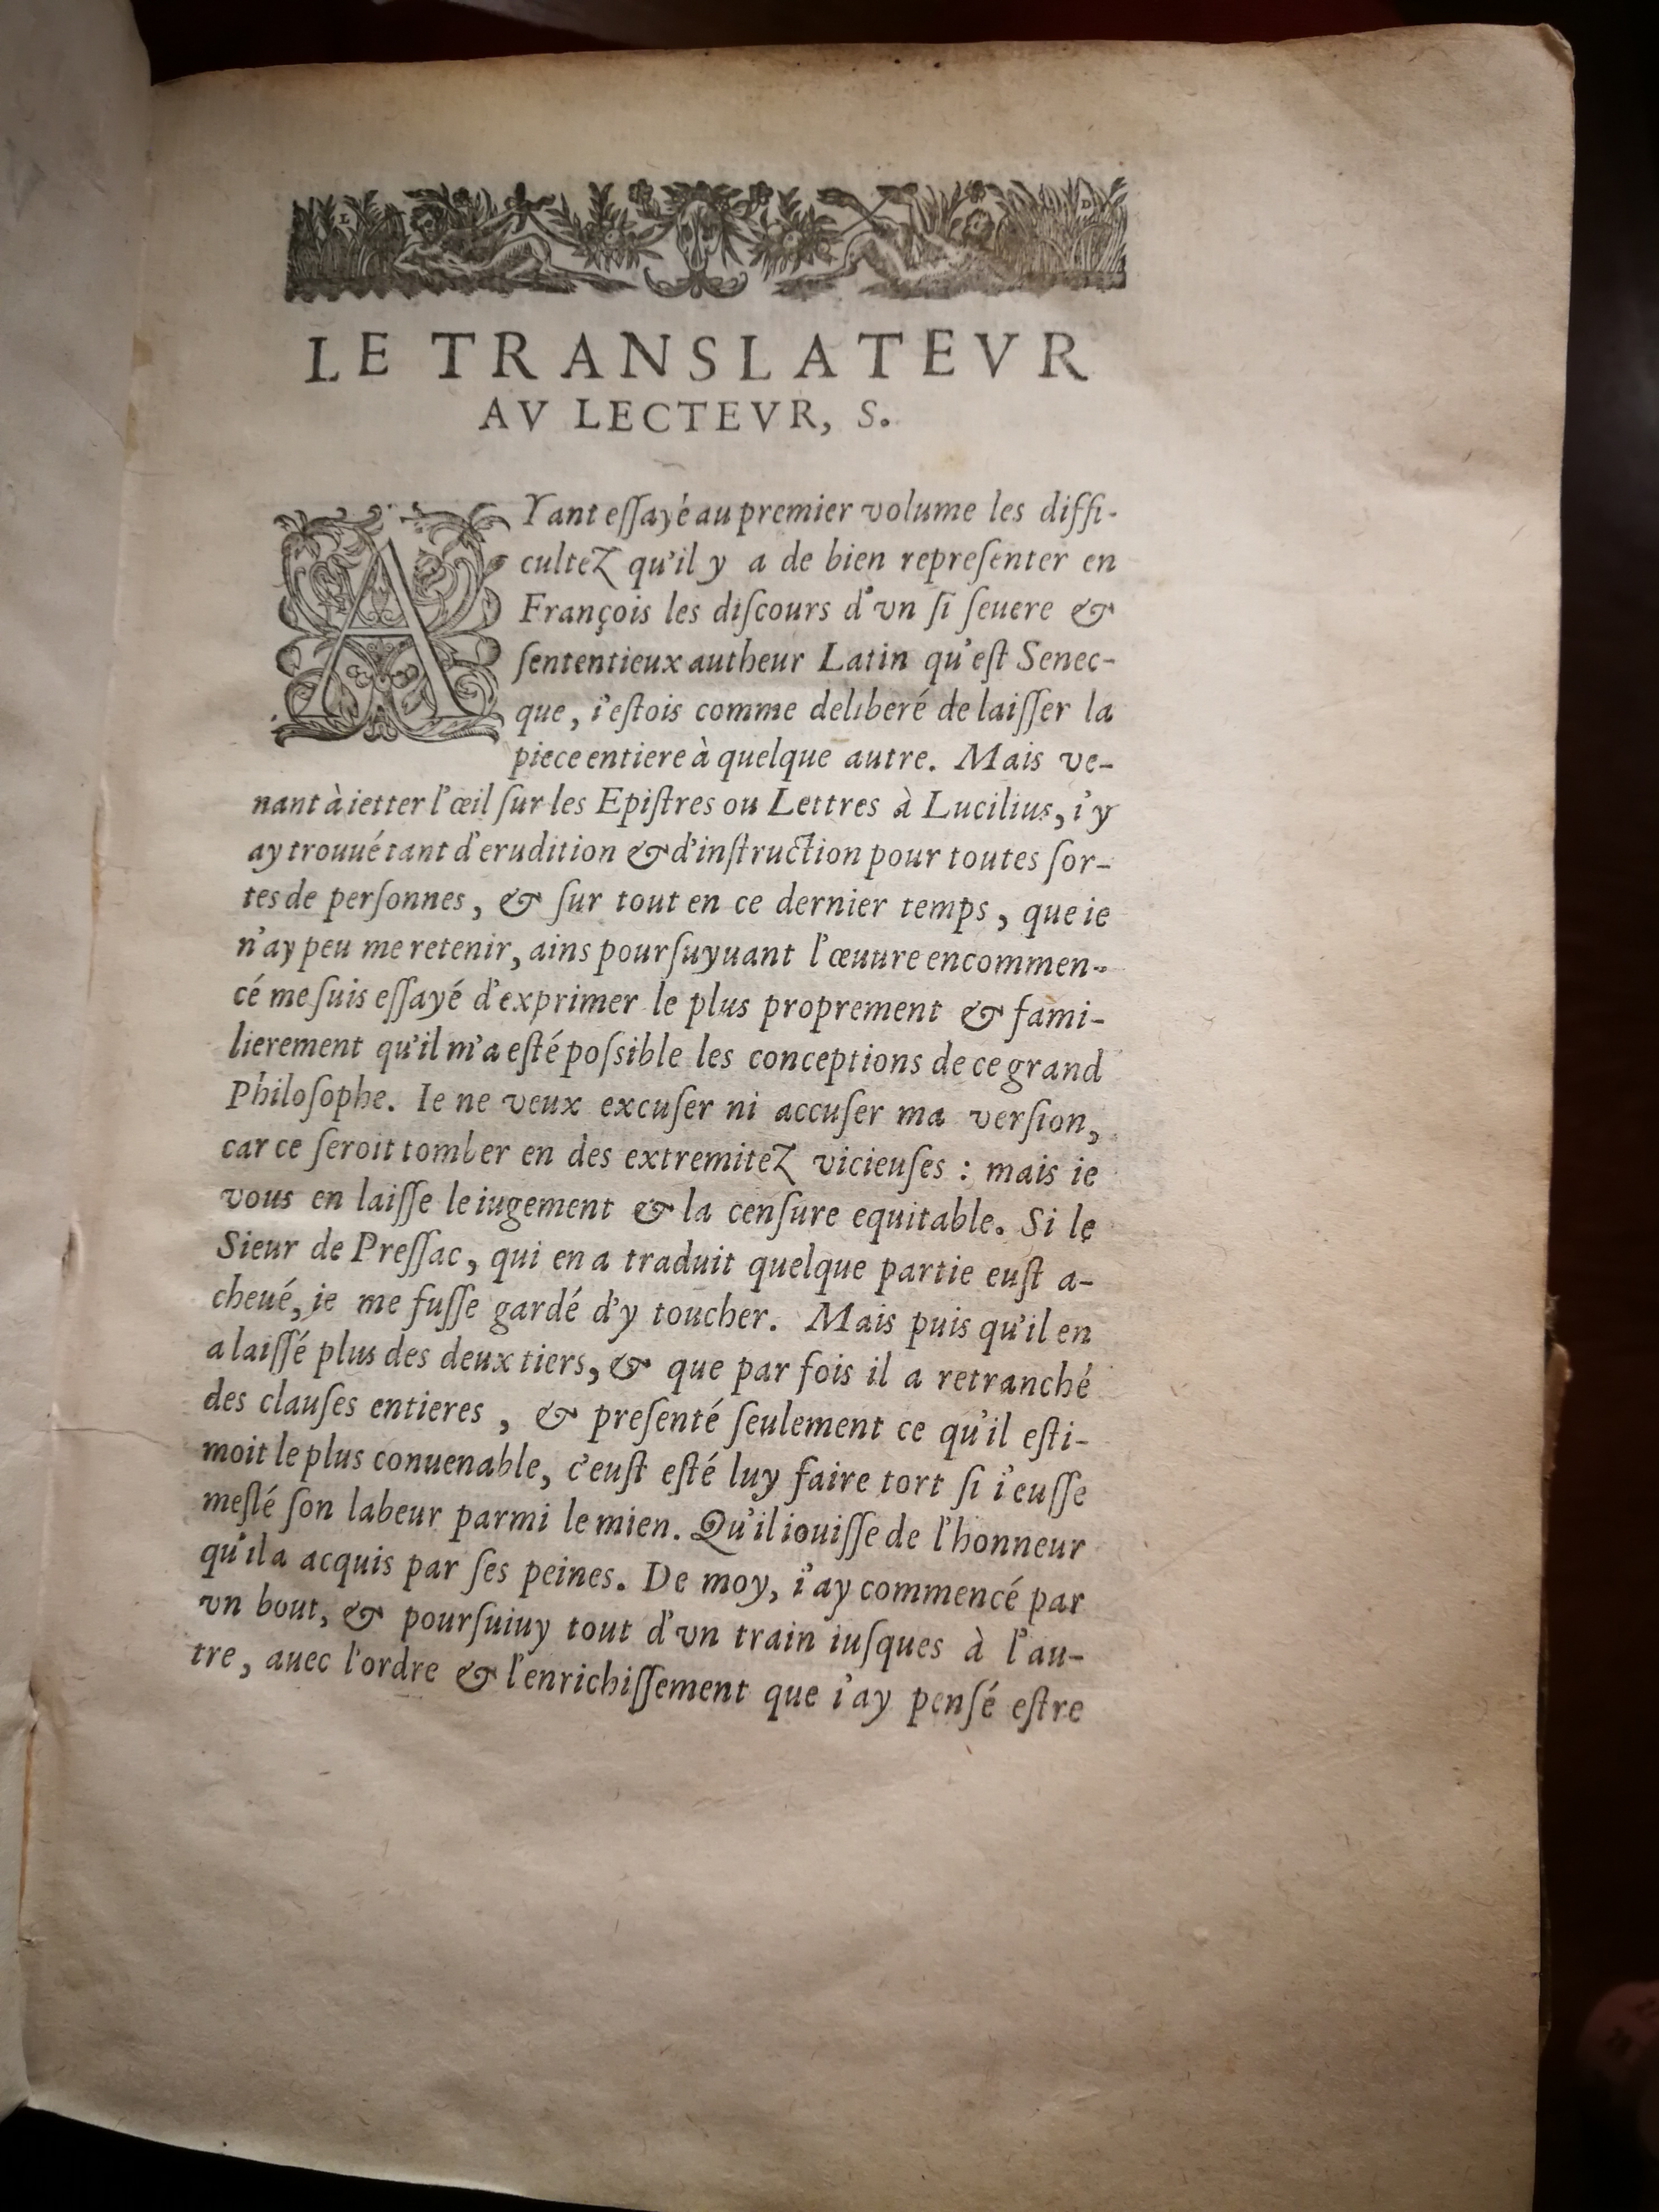 LE TRANSLATEVR
AV LECTEVR, S.
AYant eſſayé au premier volume les diffi-
cultez qu'il y a de bien repreſenter en
François les diſcours d'vn ſi ſeuere &
ſententieux autheur Latin qu'eſt Senec-
que, i'eſtois comme deliberé de laiſſer la
piece entiere à quelque autre. Mais ve-
nant à ietter l'œil ſur les Epiſtres ou Lettres à Lucilius, i'y
ay trouué tant d'erudition & d'inſtruction pour toutes ſor-
tes de perſonnes, & ſur tout en ce dernier temps, que ie
n'ay peu me retenir, ains pourſuyuant l'œuure encommen-
cé me ſuis eſſayé d'exprimer le plus proprement & fami-
lierement qu'il m'a eſté poſsible les conceptions de ce grand
Philoſophe. Ie ne veux excuſer ni accuſer ma verſion,
car ce ſeroit tomber en des extremitez vicieuſes : mais ie
vous en laiſſe le iugement & la cenſure equitable. Si le
Sieur de Preſſac, qui en a traduit quelque partie euſt a-
cheué, ie me fuſſe gardé d'y toucher. Mais puis qu'il en
a laiſſé plus des deux tiers, & que par fois il a retranché
des clauſes entieres, & preſenté ſeulement ce qu'il eſti-
moit le plus conuenable, c'euſt eſté luy faire tort ſi i'euſſe
meſlé ſon labeur parmi le mien. Qu'il iouiſſe de l'honneur
qu'il a acquis par ſes peines. De moy, i'ay commencé par
vn bout, & pourſuiuy tout d'vn train iuſques à l'au-
tre, auec l'ordre & l'enrichiſſement que i'ay penſé eſtre